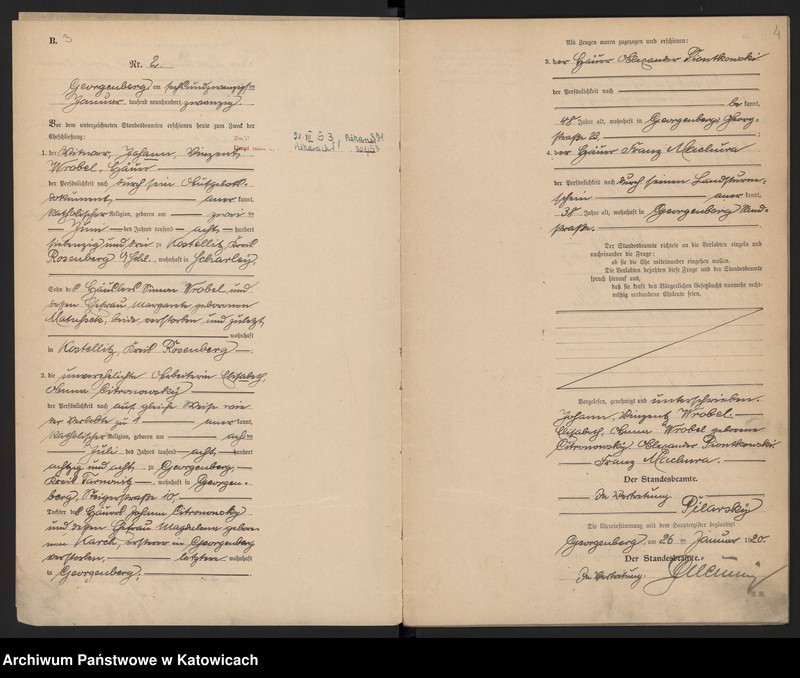 B. 3
Nr. 2.
Georgenberg, am sechsundzwanzigsten
Januar tausend neunhundert zwanzig.
Vor dem unterzeichneten Standesbeamten erschienen heute zum Zweck der
Eheschließung:
1. der Witwer, Johann, Vinzent,
Wrobel, Häuer
der Persönlichkeit nach durch sein Aufgebots-
dokument, anerkannt,
katholischer Religion, geboren am zwei-
Juni des Jahres tausend acht hundert
siebenzig und drei zu Kostellitz, Kreis
Rosenberg O/Schl., wohnhaft in Scharley,
Sohn des Häuslers Simon Wrobel und
dessen Ehefrau, Margarete, geborenen
Matussek, beide verstorben und zuletzt
wohnhaft
in Kostellitz, Kreis Rosenberg ;
2. die unverehelichte Arbeiterin Elisabeth,
Anna Citronowsky
der Persönlichkeit nach auf gleiche Weise wie
der Verlobte zu 1 anerkannt,
katholischer Religion, geboren am ach-
Juli des Jahres tausend acht hundert
achtzig und acht zu Georgenberg,
Kreis Tarnowitz, wohnhaft in Georgen-
berg, Steigerstraße 10.
Tochter des Häuers Johann Citronowsky
und dessen Ehefrau Magdalena gebore-
nen Karch, ersterer in Georgenberg
verstorben, letztere wohnhaft
in Georgenberg.
4
Als Zeugen waren zugezogen und erschienen:
3. der Häuer Alexander Piontkowski
der Persönlichkeit nach
bekannt,
48 Jahre alt, wohnhaft in Georgenberg, Georg-
straße 22. ;
4. der Häuer Franz Machura
der Persönlichkeit nach durch seinen Landsturm-
schein anerkannt,
38 Jahre alt, wohnhaft in Georgenberg
straße.
Der Standesbeamte richtete an die Verlobten einzeln und
nacheinander die Frage:
ob sie die Ehe miteinander eingehen wollen.
Die Verlobten bejahten diese Frage und der Standesbeamte
sprach hierauf aus,
daß sie kraft des Bürgerlichen Gesetzbuchs nunmehr recht-
mäßig verbundene Eheleute seien.
Vorgelesen, genehmigt und unterschrieben.
Johann, Vinzent Wrobel.
Elisabeth, Anna Wrobel geborene
Citronowsky Alexander Piontkowski
Franz Machura.
Der Standesbeamte.
In Vertretung
Pilarsky
Die Übereinstimmung mit dem Hauptregister beglaubigt
Georgenberg, am 26 ten Januar 1920.
Der Standesbeamte.
In Vertretung:
Archiwum Państwowe w Katowicach